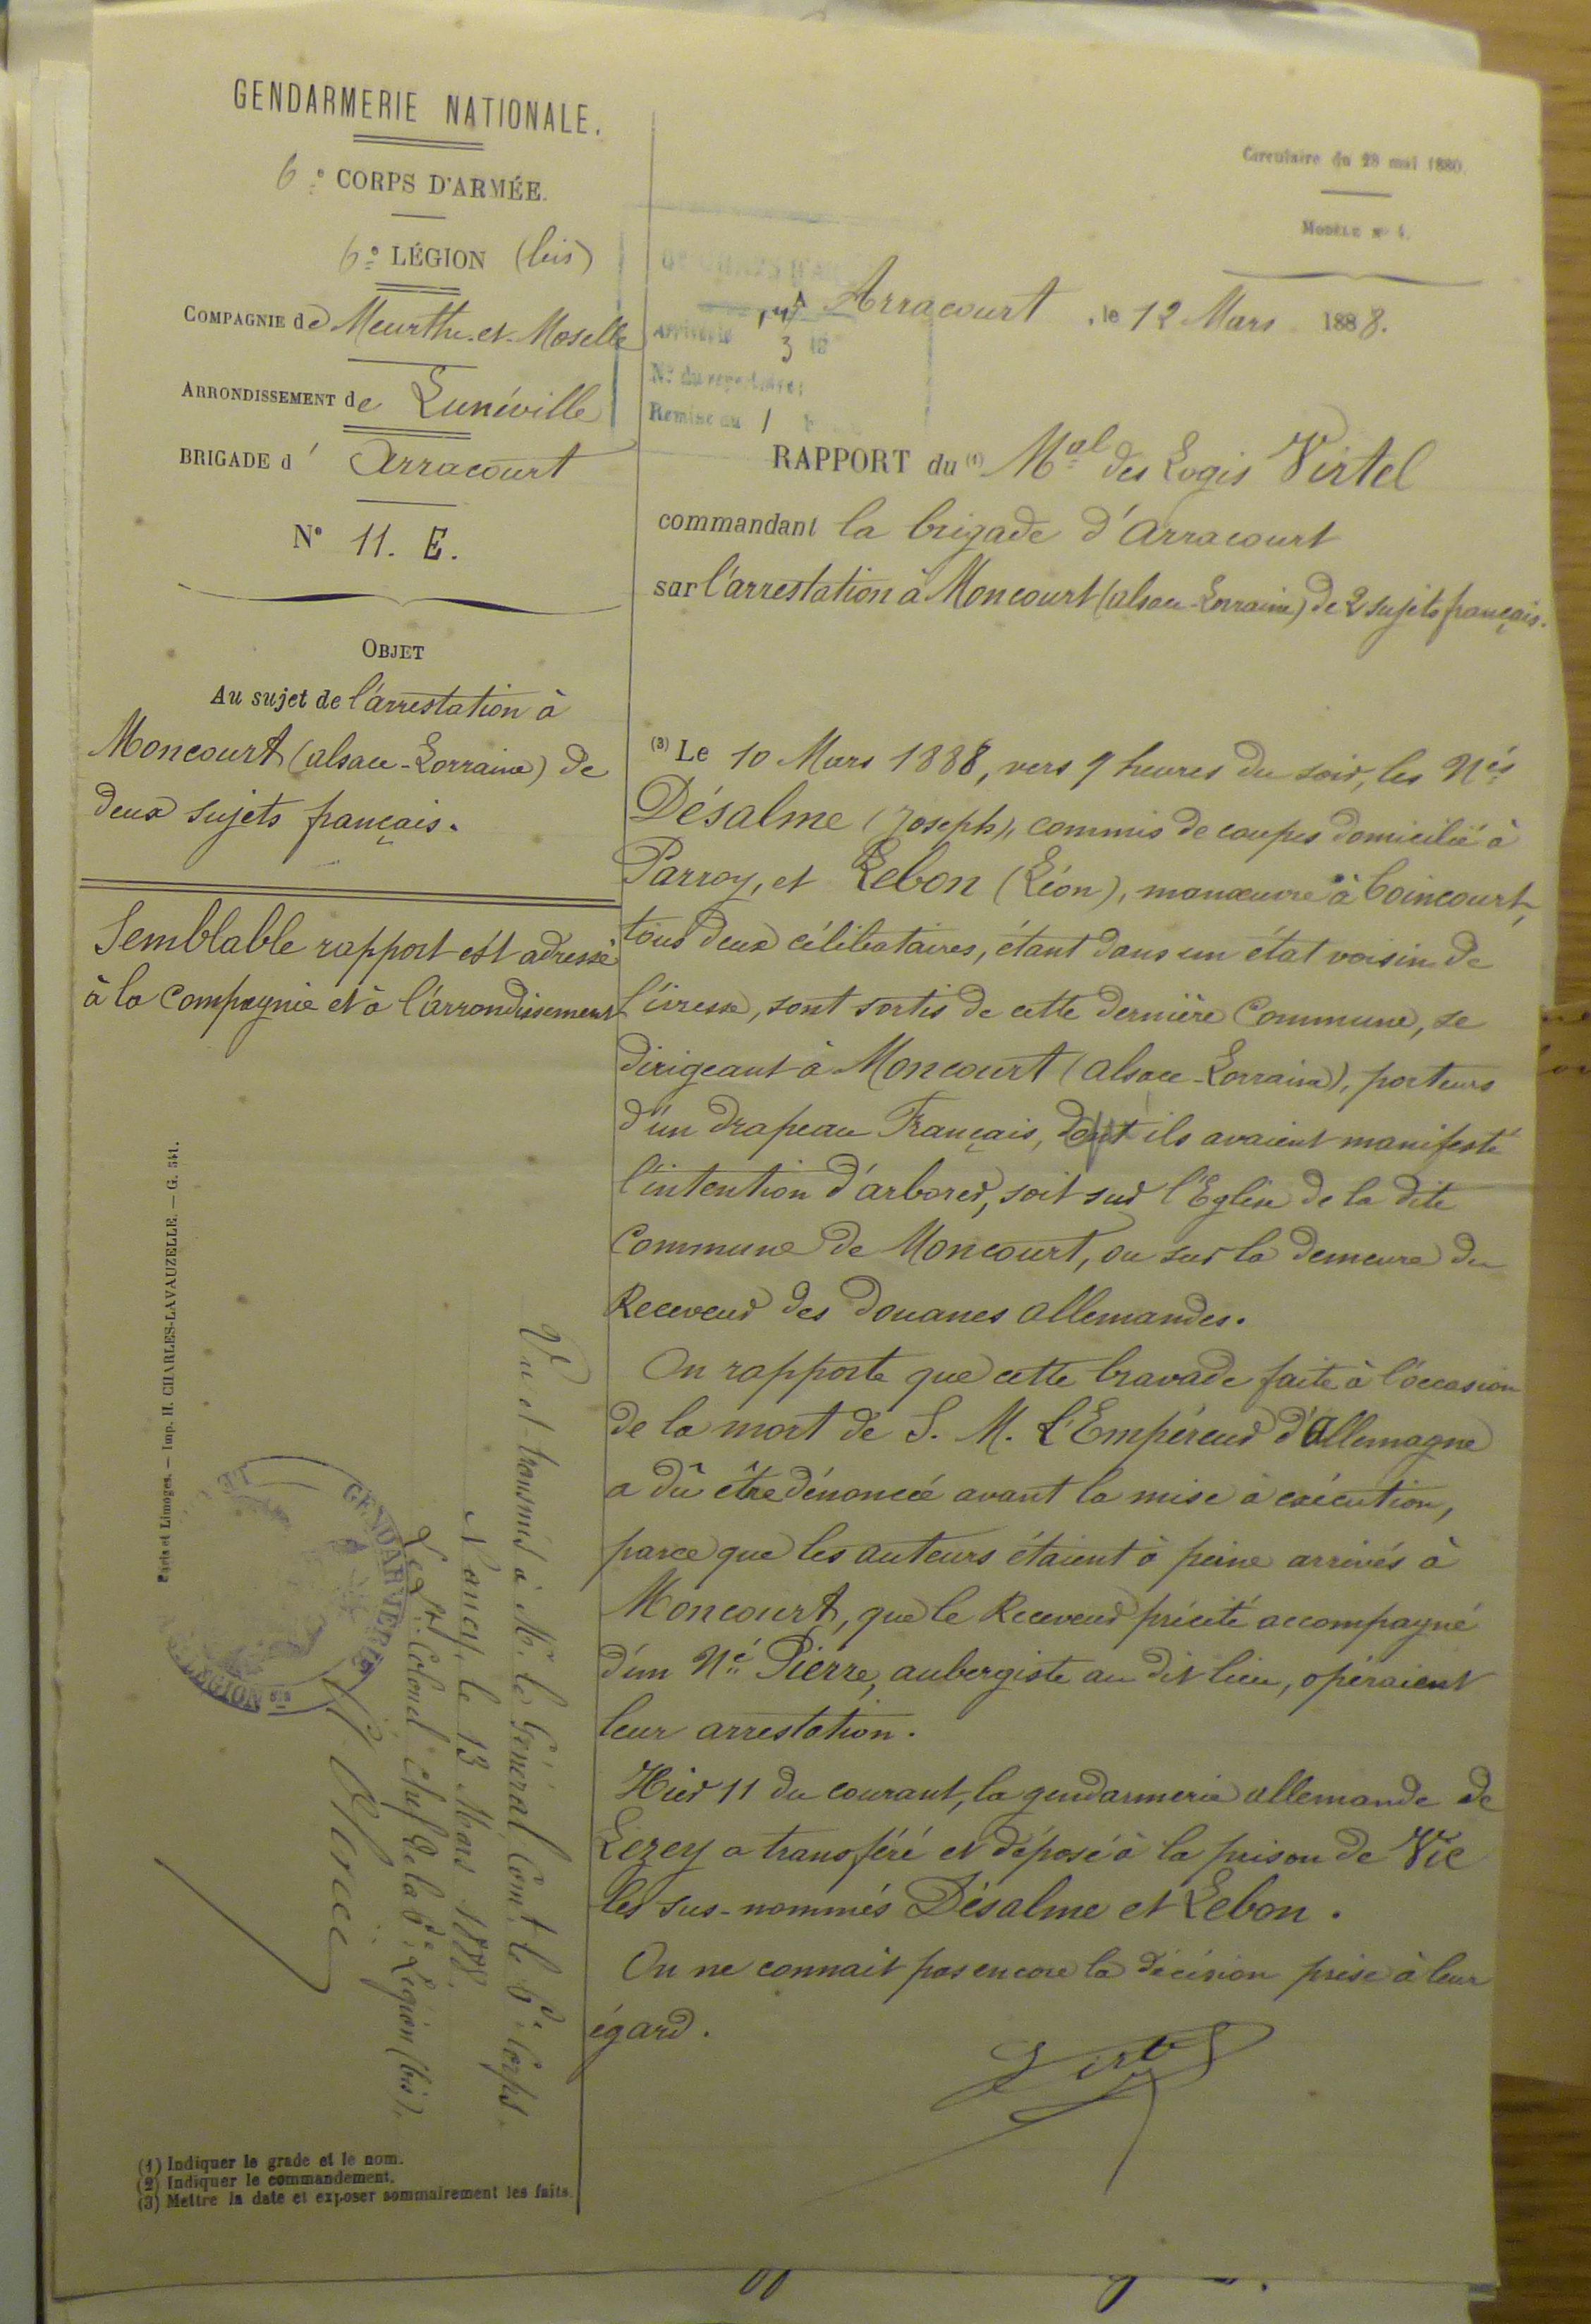 GENDARMERIE NATIONALE.
6e CORPS D'ARMÉE.
6e LÉGION (bis)
COMPAGNIE de Meurthe-et-Moselle
ARRONDISSEMENT de Lunéville
BRIGADE d' Arracourt
N° 11. E.
OBJET
Au sujet de l'arrestation à
Moncourt (alsace-Lorraine) de
deux sujets français.
Semblable rapport est adressé
à la Compagnie et à l'arrondissement
Paris et Limoges. — Imp. H. CHARLES-LAVAUZELLE. — G. 541.
GENDARMERIE
LÉGION BIS
Vu et transmis à Mr. le Général Comt. le 6e Corps.
Nancy, le 13 Mars 1888.
Le Lt. Colonel Chef de la 6e Légion (bis).
(1) Indiquer le grade et le nom.
(2) Indiquer le commandement.
(3) Mettre la date et exposer sommairement les faits.
Circulaire du 28 mai 1880.
MODÈLE N°
Arrivée
3
N° du répertoire:
Remise au 1
A Arracourt, le 12 Mars 1888.
RAPPORT du (1) Mal des Logis Virtel
commandant la brigade d'Arracourt
sur l'arrestation à Moncourt (alsace-Lorraine) de 2 sujets français.
(3) Le 10 Mars 1888, vers 9 heures du soir, les Nés
Désalme (Joseph), commis de coupes domicilié à
Parroy, et Lebon (Léon), manœuvre à Coincourt,
tous deux célibataires, étant dans un état voisin de
l'ivresse, sont sortis de cette dernière Commune, se
dirigeant à Moncourt (Alsace-Lorraine), porteurs
d'un drapeau Français, ils avaient manifesté
l'intention d'arborer, soit sur l'Eglise de la dite
Commune de Moncourt, ou sur la demeure du
Receveur des Douanes allemandes.
On rapporte que cette bravade faite à l'occasion
de la mort de S. M. L'Empéreur d'Allemagne
a dû être dénoncée avant la mise à exécution,
parce que les auteurs étaient à peine arrivés à
Moncourt, que le Receveur précité accompagné
d'un Né Pierre, aubergiste au dit lieu, opéraient
leur arrestation.
Hier 11 du courant, la gendarmerie allemande de
Lezey a transféré et déposé à la prison de Vic
les sus-nommés Désalme et Lebon.
On ne connait pas encore la décision prise à leur
égard.
Virtel